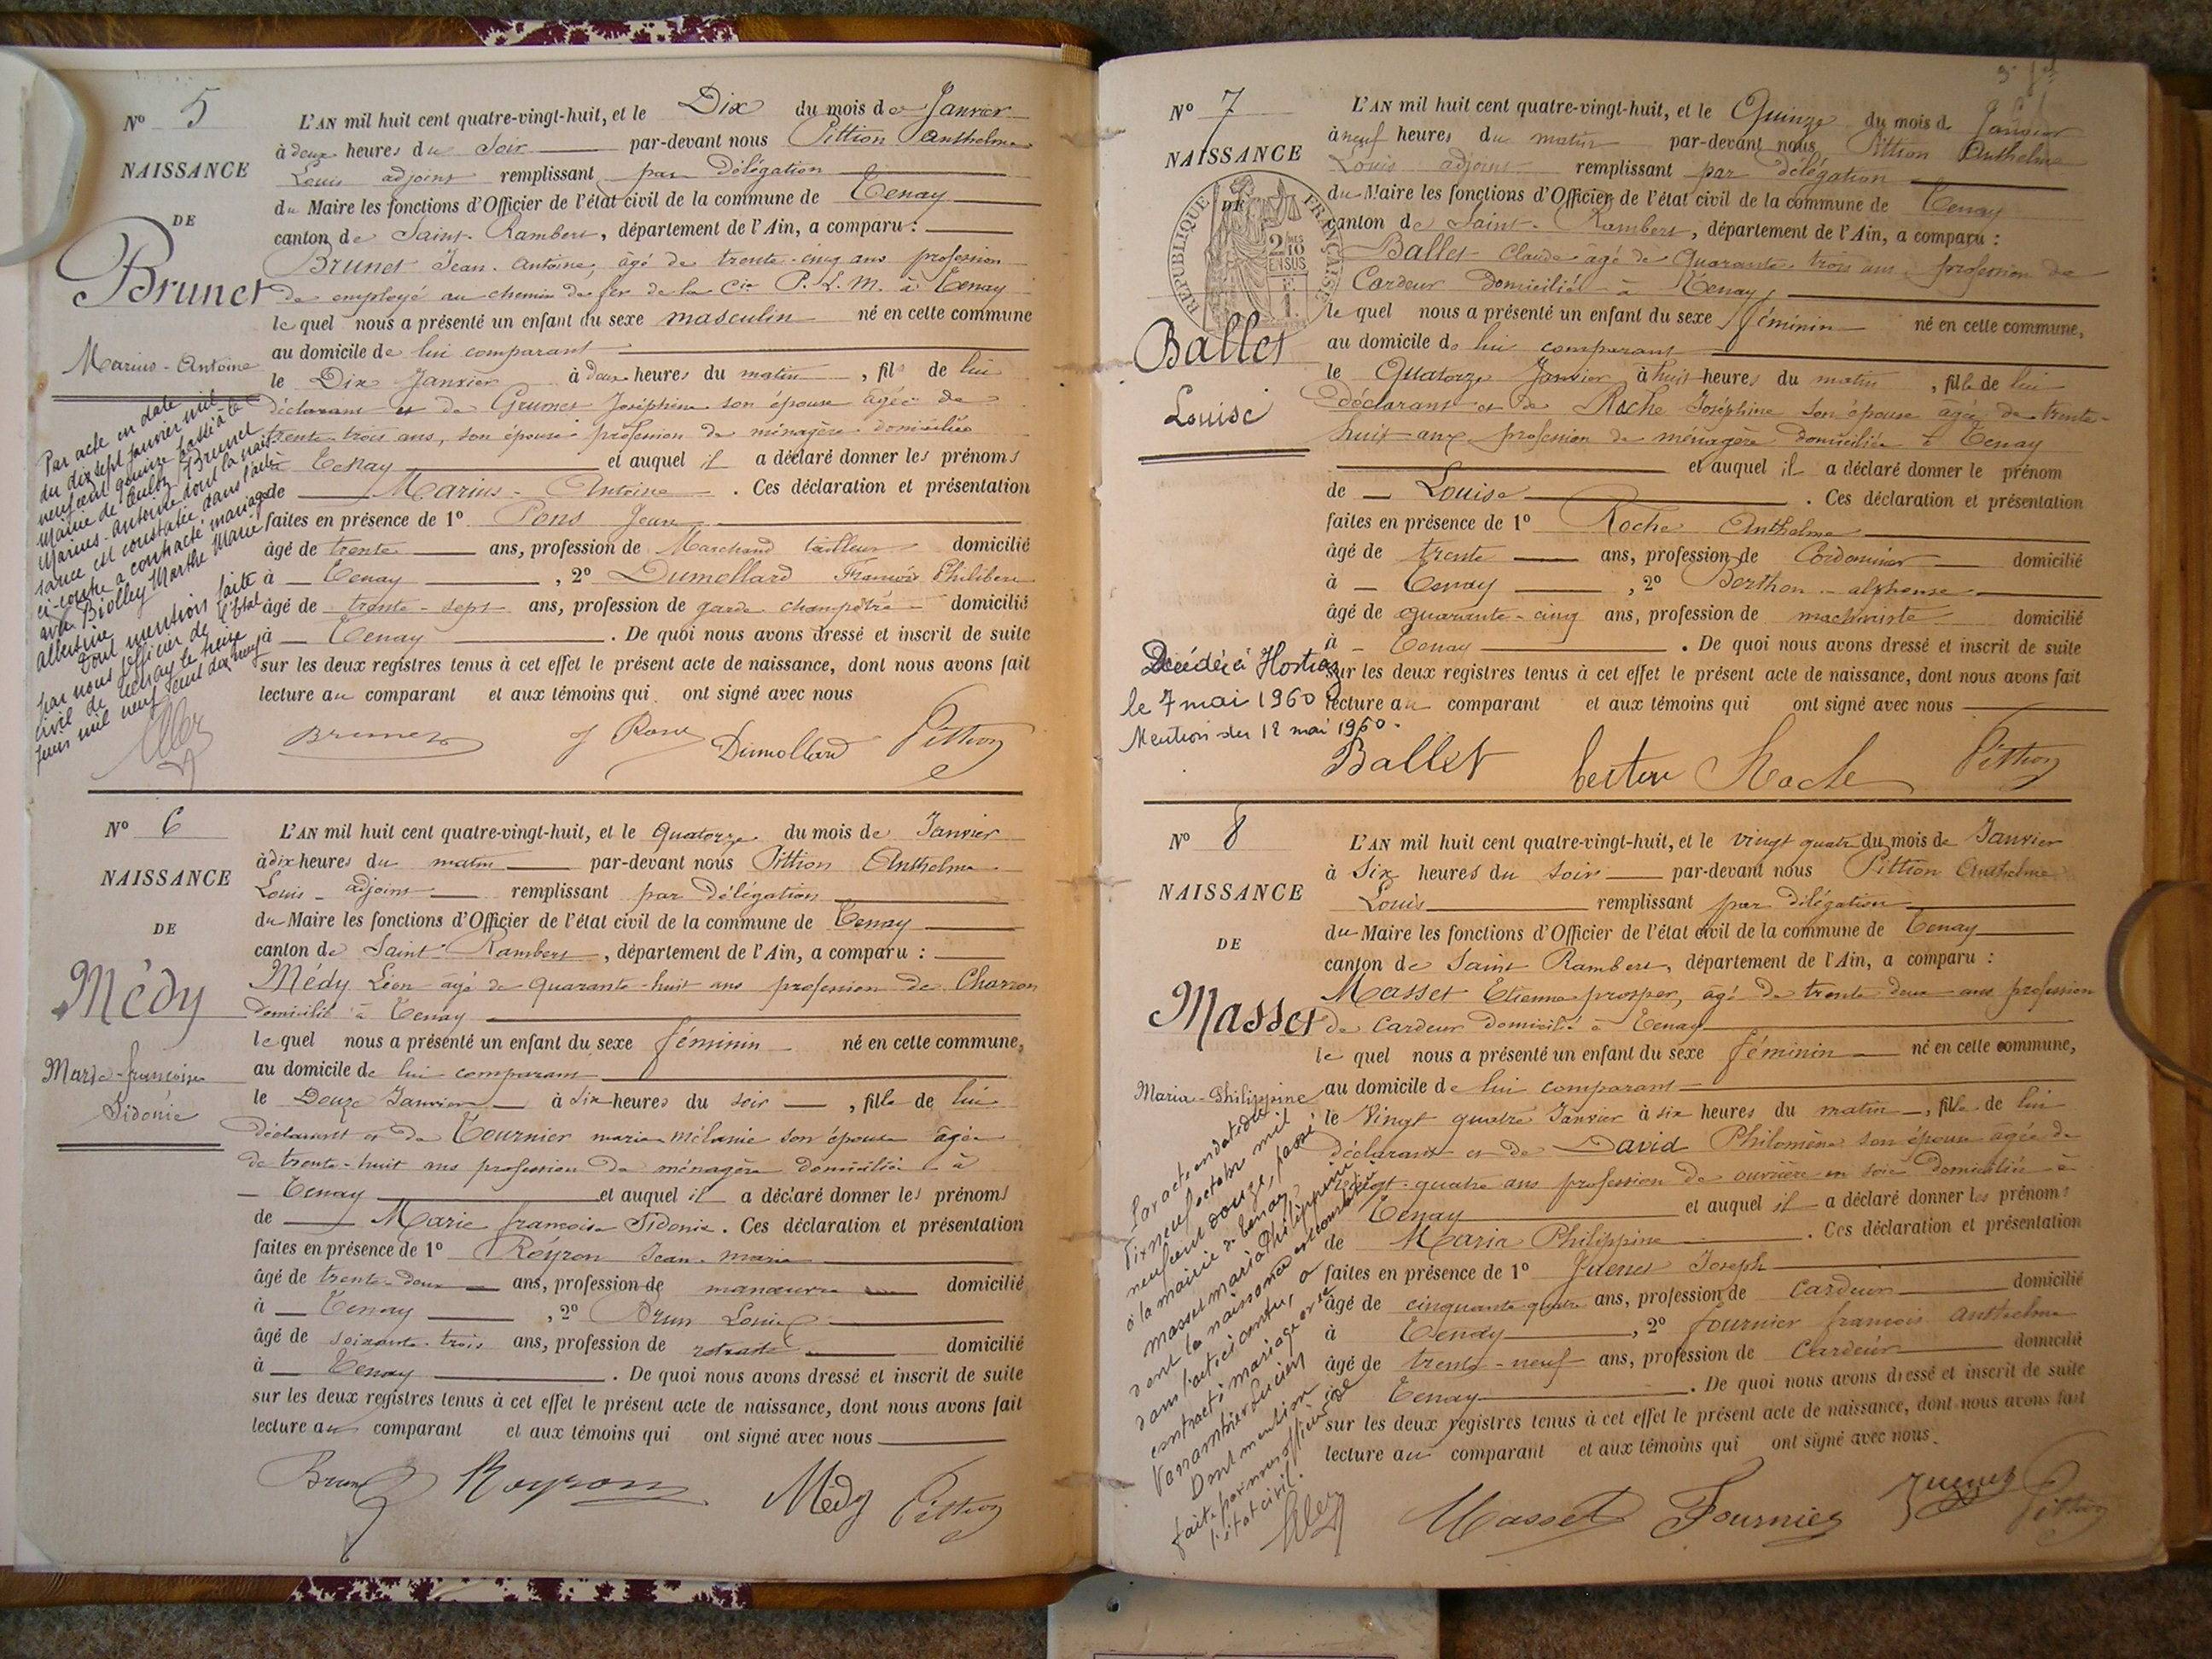 N° 5
NAISSANCE
DE
Brunet
Marius-Antoine
L'AN mil huit cent quatre-vingt-huit, et le Dix du mois de Janvier
à deux heures du Soir par-devant nous Pittion Anthelme
Louis adjoint remplissant par Délégation
du Maire les fonctions d'Officier de l'état civil de la commune de Tenay
canton de Saint-Rambert, département de l'Ain, a comparu :
Brunet Jean-Antoine, âgé de trente-cinq ans profession
de employé au chemin de fer de la Cie P. L. M. à Tenay
le quel nous a présenté un enfant du sexe masculin né en cette commune
au domicile de lui comparant
le Dix Janvier à deux heures du matin, fils de lui
déclarant et de Grumet Joséphine son épouse âgée de
trente-trois ans, son épouse profession de ménagère domiciliée
à Tenay et auquel il a déclaré donner les prénoms
de Marius-Antoine. Ces déclaration et présentation
faites en présence de 1° Pons Jean
âgé de trente ans, profession de Marchand tailleur domicilié
à Tenay, 2° Dumollard François Philibert
âgé de trente-sept ans, profession de garde champêtre domicilié
à Tenay. De quoi nous avons dressé et inscrit de suite
sur les deux registres tenus à cet effet le présent acte de naissance, dont nous avons fait
lecture au comparant et aux témoins qui ont signé avec nous
Brunet Dumollard Pittion
Par acte en date
du dix sept janvier mil
neuf cent quinze passé à la
Mairie de Culoz, Brunet
Marius-Antoine dont la nais
sance est constatée dans l'acte
ci-contre a contracté mariage
avec Biolley Marthe Marie
Albertine
Dont mention faite
par nous officier de l'état
civil de Tenay le treize
N° 6
NAISSANCE
DE
Médy
Marie-françoise
Sidonie
L'AN mil huit cent quatre-vingt-huit, et le Quatorze du mois de Janvier
à dix heures du matin par-devant nous Pittion Anthelme
Louis-adjoint remplissant par Délégation
du Maire les fonctions d'Officier de l'état civil de la commune de Tenay
canton de Saint-Rambert, département de l'Ain, a comparu :
Médy Léon âgé de quarante-huit ans profession de Charron
domicilié à Tenay
le quel nous a présenté un enfant du sexe féminin né en cette commune,
au domicile de lui comparant
le Douze Janvier à six heures du soir, fille de lui
déclarant et de Tournier marie mélanie son épouse âgée
de trente-huit ans profession de ménagère domiciliée à
Tenay et auquel il a déclaré donner les prénoms
de Marie françoise Sidonie. Ces déclaration et présentation
faites en présence de 1° Reyron Jean-marie
âgé de trente-deux ans, profession de manœuvre domicilié
à Tenay, 2° Brun Louis
âgé de soixante-trois ans, profession de retraité domicilié
à Tenay. De quoi nous avons dressé et inscrit de suite
sur les deux registres tenus à cet effet le présent acte de naissance, dont nous avons fait
lecture au comparant et aux témoins qui ont signé avec nous
Brun Reyron Médy Pittion
N° 7
NAISSANCE
DE
RÉPUBLIQUE FRANÇAISE
2/10 EN SUS
Ballet
Louise
L'AN mil huit cent quatre-vingt-huit, et le Quinze du mois de Janvier
à neuf heures du matin par-devant nous Pittion Anthelme
Louis adjoint remplissant par délégation
du Maire les fonctions d'Officier de l'état civil de la commune de Tenay
canton de Saint-Rambert, département de l'Ain, a comparu :
Ballet Claude âgé de Quarante-trois ans profession de
Cardeur domicilié à Tenay
le quel nous a présenté un enfant du sexe féminin né en cette commune,
au domicile de lui comparant
le Quatorze Janvier à huit heures du matin, fille de lui
déclarant et de Roche Joséphine son épouse âgée de trente-
huit ans profession de ménagère domiciliée à Tenay
et auquel il a déclaré donner le prénom
de Louise. Ces déclaration et présentation
faites en présence de 1° Roche Anthelme
âgé de trente ans, profession de Cordonnier domicilié
à Tenay, 2° Berthon alphonse
âgé de quarante-cinq ans, profession de machiniste domicilié
à Tenay. De quoi nous avons dressé et inscrit de suite
sur les deux registres tenus à cet effet le présent acte de naissance, dont nous avons fait
lecture au comparant et aux témoins qui ont signé avec nous
Décédée à Hostiaz
le 7 mai 1960
Mention du 12 mai 1960.
Ballet Roche Pittion
N° 8
NAISSANCE
DE
Masset
Maria-Philippine
L'AN mil huit cent quatre-vingt-huit, et le vingt quatre du mois de Janvier
à Six heures du soir par-devant nous Pittion Anthelme
Louis remplissant par délégation
du Maire les fonctions d'Officier de l'état civil de la commune de Tenay
canton de Saint Rambert, département de l'Ain, a comparu :
Masset Etienne prosper, âgé de trente deux ans profession
de Cardeur domicilié à Tenay
le quel nous a présenté un enfant du sexe féminin né en cette commune,
au domicile de lui comparant
le Vingt quatre Janvier à six heures du matin, fille de lui
déclarant et de David Philomène son épouse âgée de
vingt-quatre ans profession de ouvrière en soie domiciliée à
Tenay et auquel il a déclaré donner les prénoms
de Maria Philippine. Ces déclaration et présentation
faites en présence de 1° Juenet Joseph
âgé de cinquante quatre ans, profession de Cardeur domicilié
à Tenay, 2° fournier françois anthelme
âgé de trente-neuf ans, profession de Cardeur domicilié
à Tenay. De quoi nous avons dressé et inscrit de suite
sur les deux registres tenus à cet effet le présent acte de naissance, dont nous avons fait
lecture au comparant et aux témoins qui ont signé avec nous.
Par acte en date du
dix neuf octobre mil
neuf cent douze, passé
à la mairie de Tenay
Masset Maria Philippine
dont la naissance est constatée
dans l'acte ci contre, a
contracté mariage avec
Vanambier Lucien
Dont mention
faite par nous officier de
l'état civil.
Masset Fournier Juenet Pittion